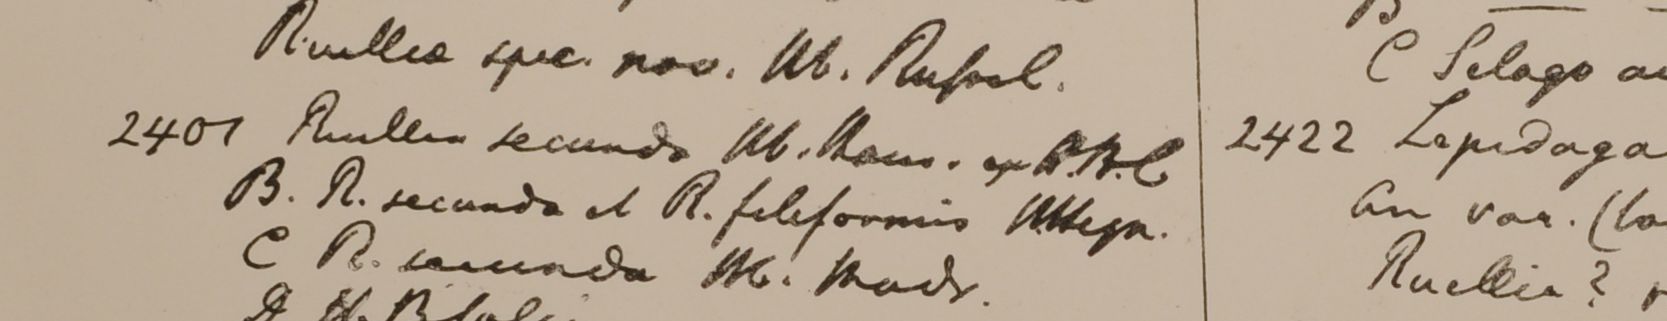 Ruellia spec. nov. Hb. Russel.
2401 Ruellia secunda Hb. Ham. ex H.B.C
B. R. secunda et R. filiformis Hb. Heyn.
C R. secunda Hb. Madr.
D Hb.
B
C Selago
2422 Lepidaga
an var. (
Ruellia?